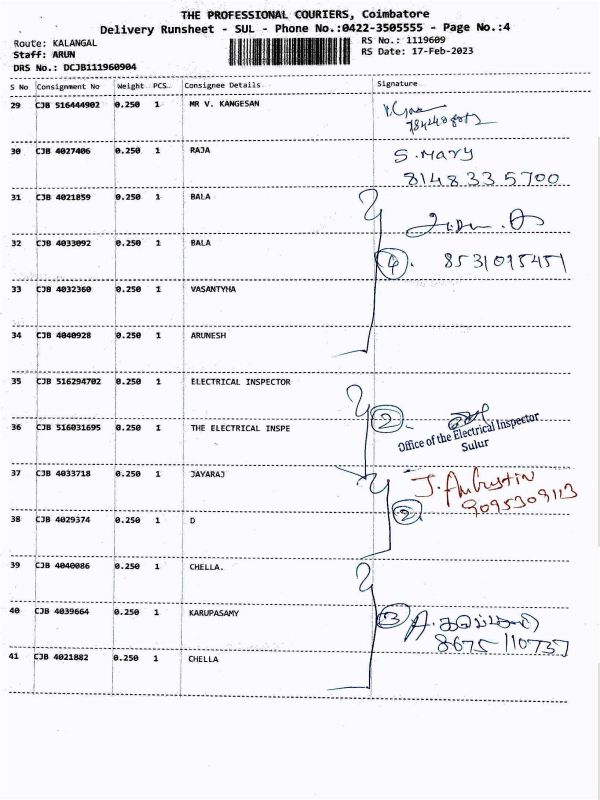 THE PROFESSIONAL COURIERS, Coimbatore
Delivery Runsheet - SUL - Phone No.:0422-3505555 - Page No.:4
Route: KALANGAL RS No.: 1119609
Staff: ARUN RS Date: 17-Feb-2023
DRS No.: DCJB111960904
S No Consignment No Weight PCS. Consignee Details Signature
29 CJB 516444902 0.250 1 MR V. KANGESAN
30 CJB 4027406 0.250 1 RAJA S. Mary
8148335700
31 CJB 4021859 0.250 1 BALA
32 CJB 4033092 0.250 1 BALA 4. 8531095451
33 CJB 4032360 0.250 1 VASANTYHA
34 CJB 4040928 0.250 1 ARUNESH
35 CJB 516294702 0.250 1 ELECTRICAL INSPECTOR
2
36 CJB 516031695 0.250 1 THE ELECTRICAL INSPE Office of the Electrical Inspector
Sulur
37 CJB 4033718 0.250 1 JAYARAJ J.
9095309113
38 CJB 4029374 0.250 1 D 2
39 CJB 4040086 0.250 1 CHELLA.
40 CJB 4039664 0.250 1 KARUPASAMY 3 A.
8675110737
41 CJB 4021882 0.250 1 CHELLA